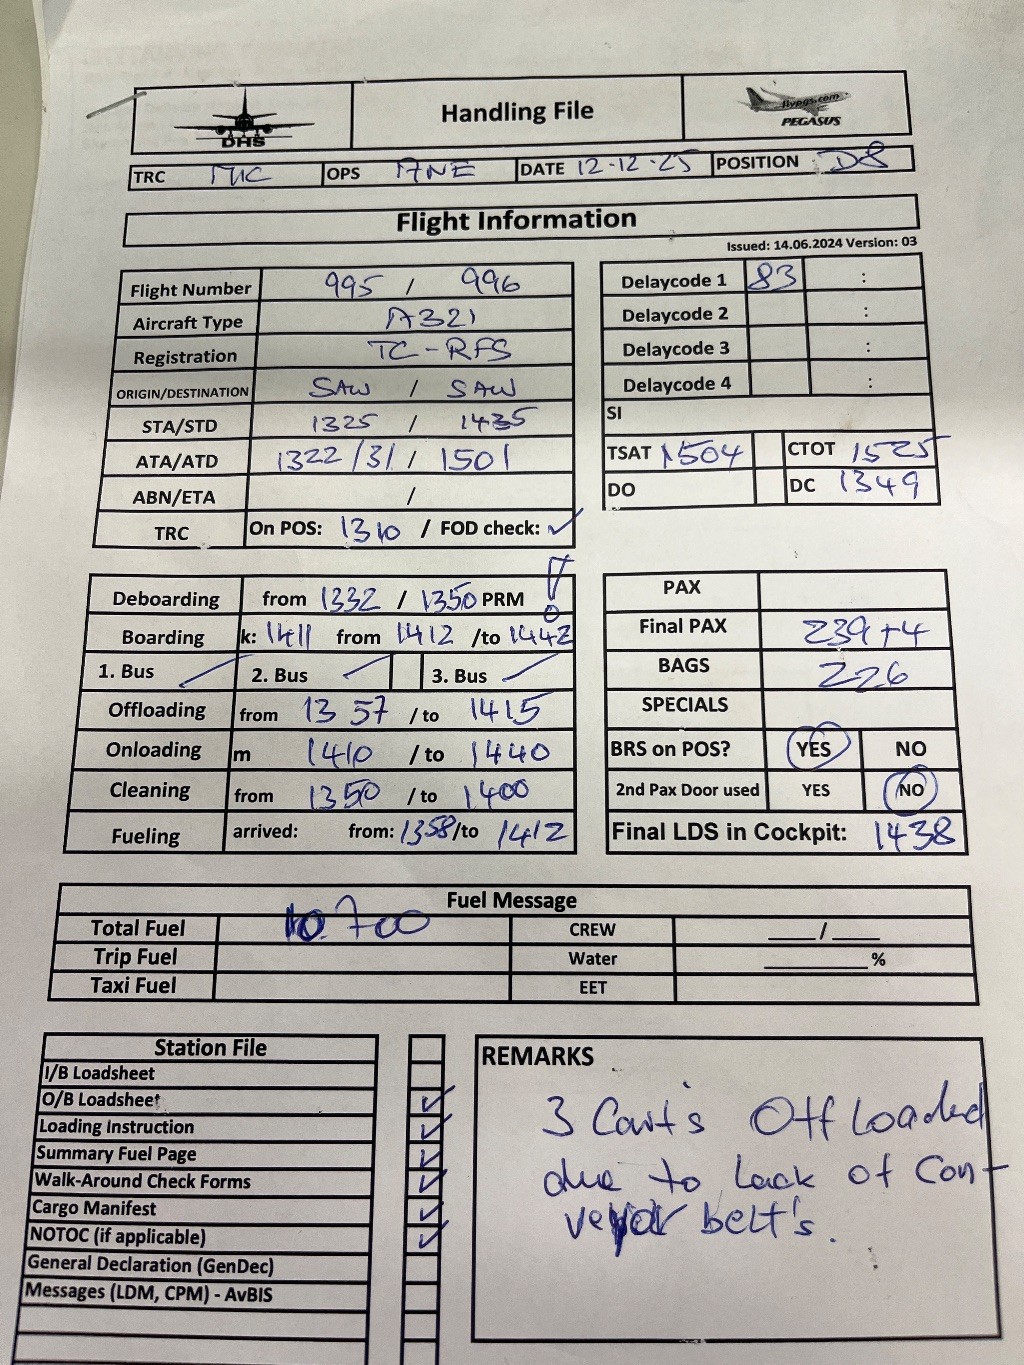 DHS
Handling File
flypgs.com
PEGASUS
TRC OPS ANE DATE 12-12-25 POSITION D8
Flight Information
Issued: 14.06.2024 Version: 03
Flight Number 995 / 996
Aircraft Type A321
Registration TC-RFS
ORIGIN/DESTINATION SAW / SAW
STA/STD 1325 / 1435
ATA/ATD 1322/31 / 1501
ABN/ETA /
TRC On POS: 1310 / FOD check: ✓
Delaycode 1 83 :
Delaycode 2 :
Delaycode 3 :
Delaycode 4 :
SI
TSAT 1504 CTOT 1525
DO DC 1349
Deboarding from 1332 / 1350 PRM
Boarding k: 1411 from 1412 /to 1442
1. Bus 2. Bus 3. Bus
Offloading from 1357 /to 1415
Onloading m 1410 /to 1440
Cleaning from 1350 /to 1400
Fueling arrived: from: 1358 /to 1412
PAX
Final PAX 239+4
BAGS 226
SPECIALS
BRS on POS? YES NO
2nd Pax Door used YES NO
Final LDS in Cockpit: 1438
Fuel Message
Total Fuel 10.700 CREW ___/___
Trip Fuel Water ______%
Taxi Fuel EET
Station File
I/B Loadsheet
O/B Loadsheet ✓
Loading Instruction ✓
Summary Fuel Page ✓
Walk-Around Check Forms ✓
Cargo Manifest ✓
NOTOC (if applicable) ✓
General Declaration (GenDec)
Messages (LDM, CPM) - AvBIS
REMARKS
3 Cart's Offloaded
due to Lack of Con-
veyor belt's.